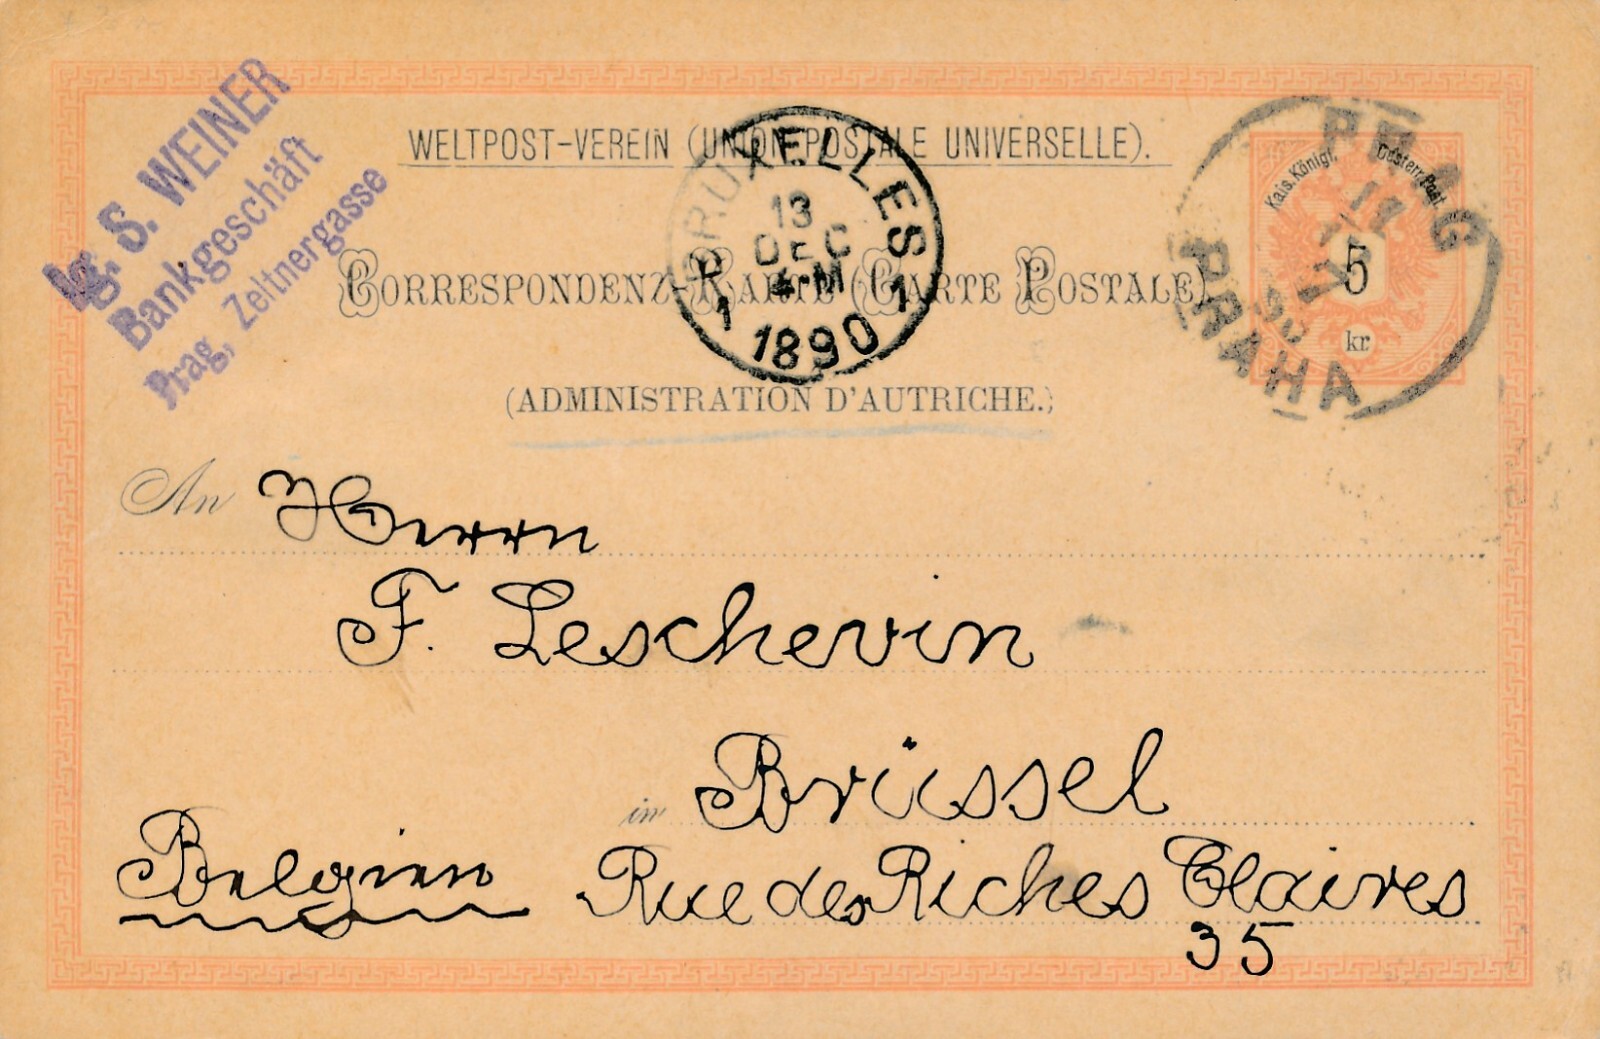 Ig. S. WEINER
Bankgeschäft
Prag, Zeltnergasse
WELTPOST-VEREIN (UNION POSTALE UNIVERSELLE).
BRUXELLES
13
DEC
4-M
1 1890 1
PRAG
PRAHA
Kais. Königl. Oesterr. Post.
5
kr
CORRESPONDENZ-KARTE (CARTE POSTALE)
(ADMINISTRATION D'AUTRICHE.)
An Herrn
F. Leschevin
in Brüssel
Belgien Rue des Riches Claires
35